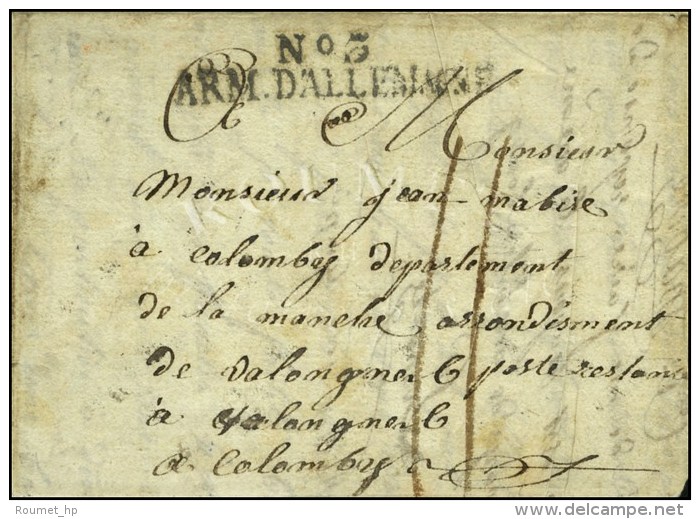 No 5
ARM. D'ALLEMAGNE
A Monsieur
Monsieur jean mabire
à colomby departement
de la manche arrondisment
de valongner 6 poste restante
à valongner 6
a colomby
Roumet_hp
www.delcampe.net